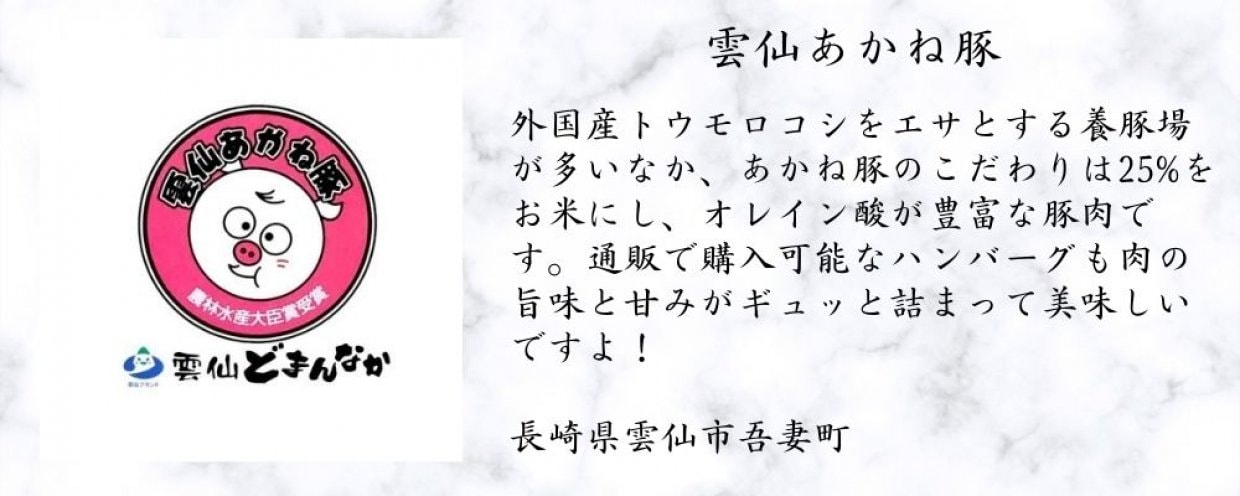 雲仙あかね豚
農林水産大臣賞受賞
雲仙どまんなか
雲仙あかね豚
外国産トウモロコシをエサとする養豚場
が多いなか、あかね豚のこだわりは25%を
お米にし、オレイン酸が豊富な豚肉で
す。通販で購入可能なハンバーグも肉の
旨味と甘みがギュッと詰まって美味しい
ですよ！
長崎県雲仙市吾妻町